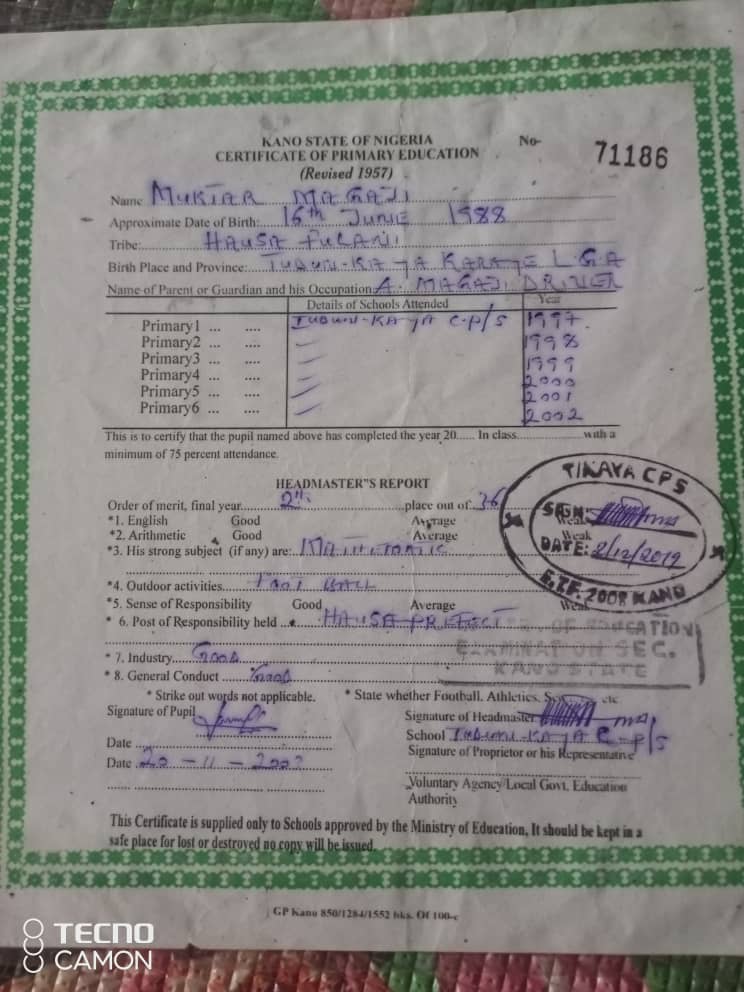 KANO STATE OF NIGERIA No- 71186
CERTIFICATE OF PRIMARY EDUCATION
(Revised 1957)
Name MUKTAR MAGAJI
Approximate Date of Birth: 16th JUNE 1988
Tribe: HAUSA FULANI
Birth Place and Province: TUDUN-KAYA KARAYE L.G.A
Name of Parent or Guardian and his Occupation A. MAGAJI DRIVER
Details of Schools Attended Year
Primary1 ... .... TUDUN-KAYA C.P/S 1997
Primary2 ... .... 1998
Primary3 ... .... 1999
Primary4 ... .... 2000
Primary5 ... .... 2001
Primary6 ... .... 2002
This is to certify that the pupil named above has completed the year 20...... In class............... with a
minimum of 75 percent attendance.
HEADMASTER"S REPORT
Order of merit, final year 2nd place out of 36
*1. English Good Average Weak
*2. Arithmetic Good Average Weak
*3. His strong subject (if any) are:
*4. Outdoor activities FOOT BALL
*5. Sense of Responsibility Good Average Weak
* 6. Post of Responsibility held HAUSA PREFECT
* 7. Industry Good
* 8. General Conduct Good
* Strike out words not applicable. * State whether Football, Athletics, etc.
Signature of Pupil
Signature of Headmaster
School TUDUN-KAYA C-P/S
Date Signature of Proprietor or his Representative
Date 20-11-
Voluntary Agency/Local Govt. Education
Authority
This Certificate is supplied only to Schools approved by the Ministry of Education, It should be kept in a
safe place for lost or destroyed no copy will be issued.
GP Kano 850/1284/1552 bks. Of 100-c
CPS
SIGN:
DATE: 2/12/2019
KANO
OF EDUCATION
EXAMINATION SEC.
KANO STATE
TECNO
CAMON